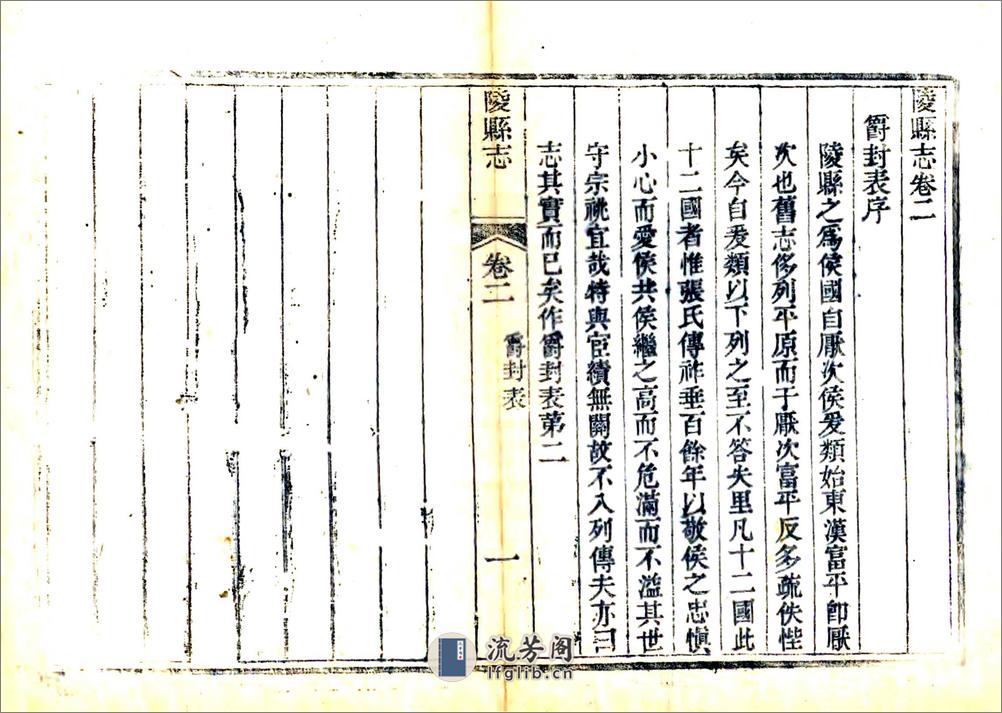 陵縣志卷二
爵封表序
陵縣之爲侯國自厭次侯爰類始東漢富平即厭
次也舊志侈列平原而于厭次富平反多疏佚悖
矣今自爰類以下列之至不答失里凡十二國此
十二國者惟張氏傳祚垂百餘年以敬侯之忠愼
小心而愛侯共侯繼之高而不危滿而不溢其世
守宗祧宜哉特與宦績無關故不入列傳夫亦曰
志其實而已矣作爵封表第二
陵縣志
卷二
爵封表
一
流芳阁
lfglib.cn